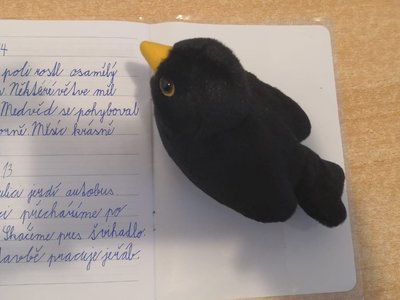 4
poli rostl osamělý
Některé větve měl
Medvěd se pohyboval
orně. Měsíc krásně
13
ulici jezdí autobus
přecházíme po
Skáčeme přes švihadlo.
stavbě pracuje jeřáb.